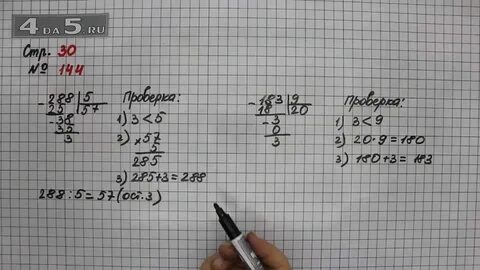 4DA5.RU
Стр. 30
№ 144
- 288 | 5
25 | 57
- 38
35
3
Проверка:
1) 3 < 5
2) × 57
5
285
3) 285+3=288
288 : 5 = 57 (ост. 3)
- 183 | 9
18 | 20
- 3
0
3
Проверка:
1) 3 < 9
2) 20 · 9 = 180
3) 180 + 3 = 183